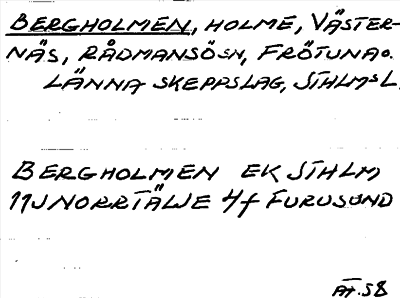 BERGHOLMEN, HOLME, VÄSTER-
NÄS, RÅDMANSÖ SN, FRÖTUNA O.
LÄNNA SKEPPSLAG, STHLMS L.
BERGHOLMEN EK STHLM
11J NORRTÄLJE 4f FURUSUND
AT. 58